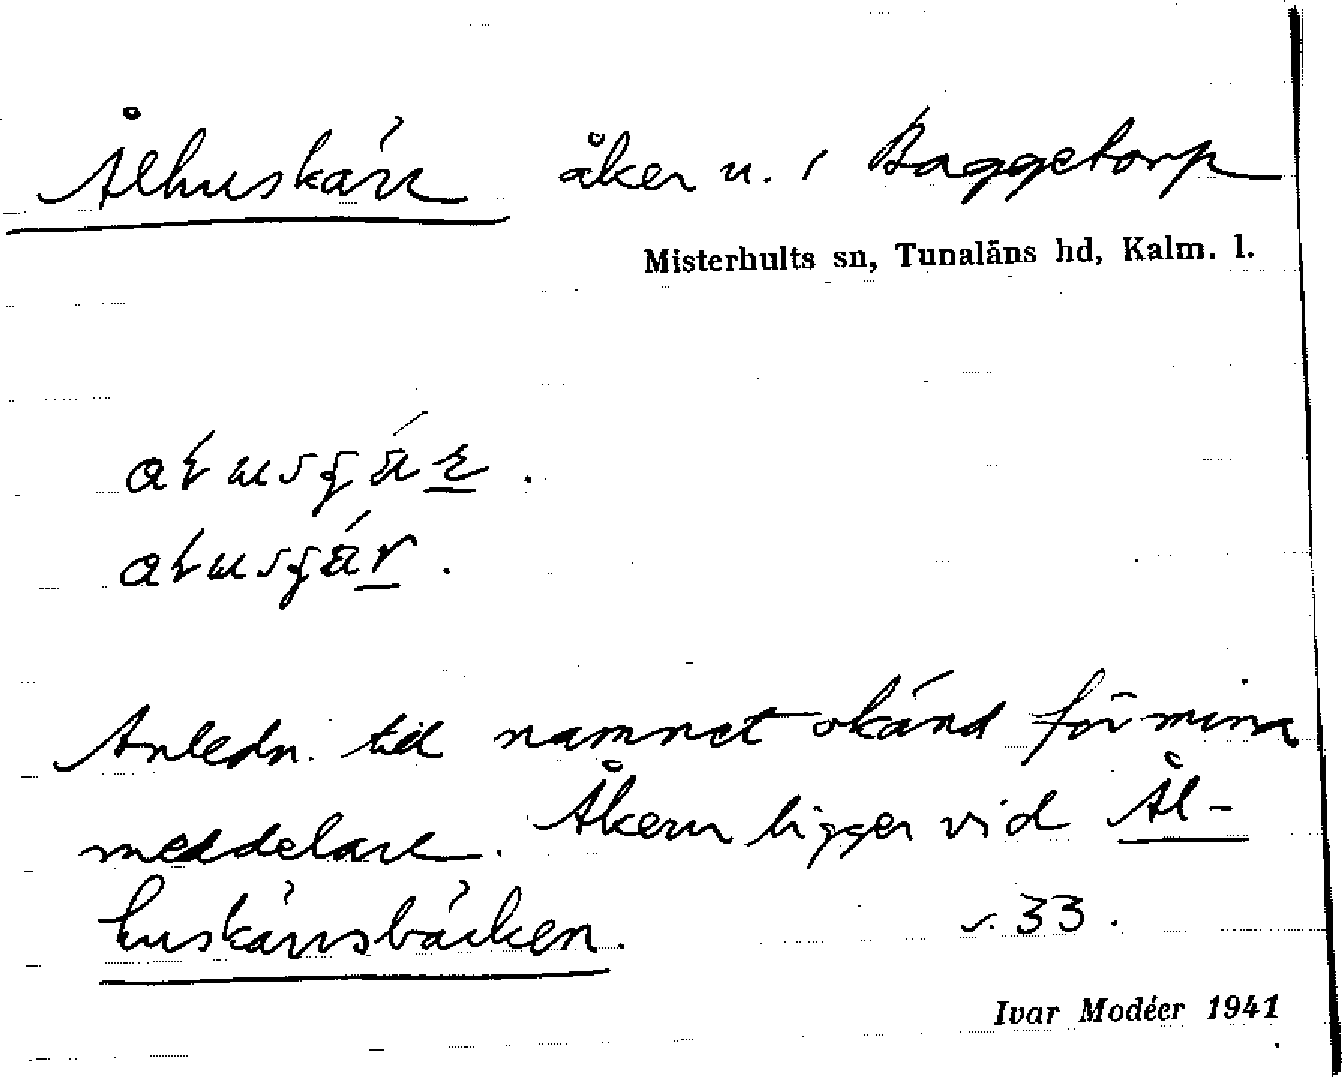 Ålhuskärr åker u. i Baggetorp
Misterhults sn, Tunaläns hd, Kalm. l.
Anledn. till namnet okänd för mina
meddelare. Åkern ligger vid Ål-
huskärrsbäcken. s. 33.
Ivar Modéer 1941